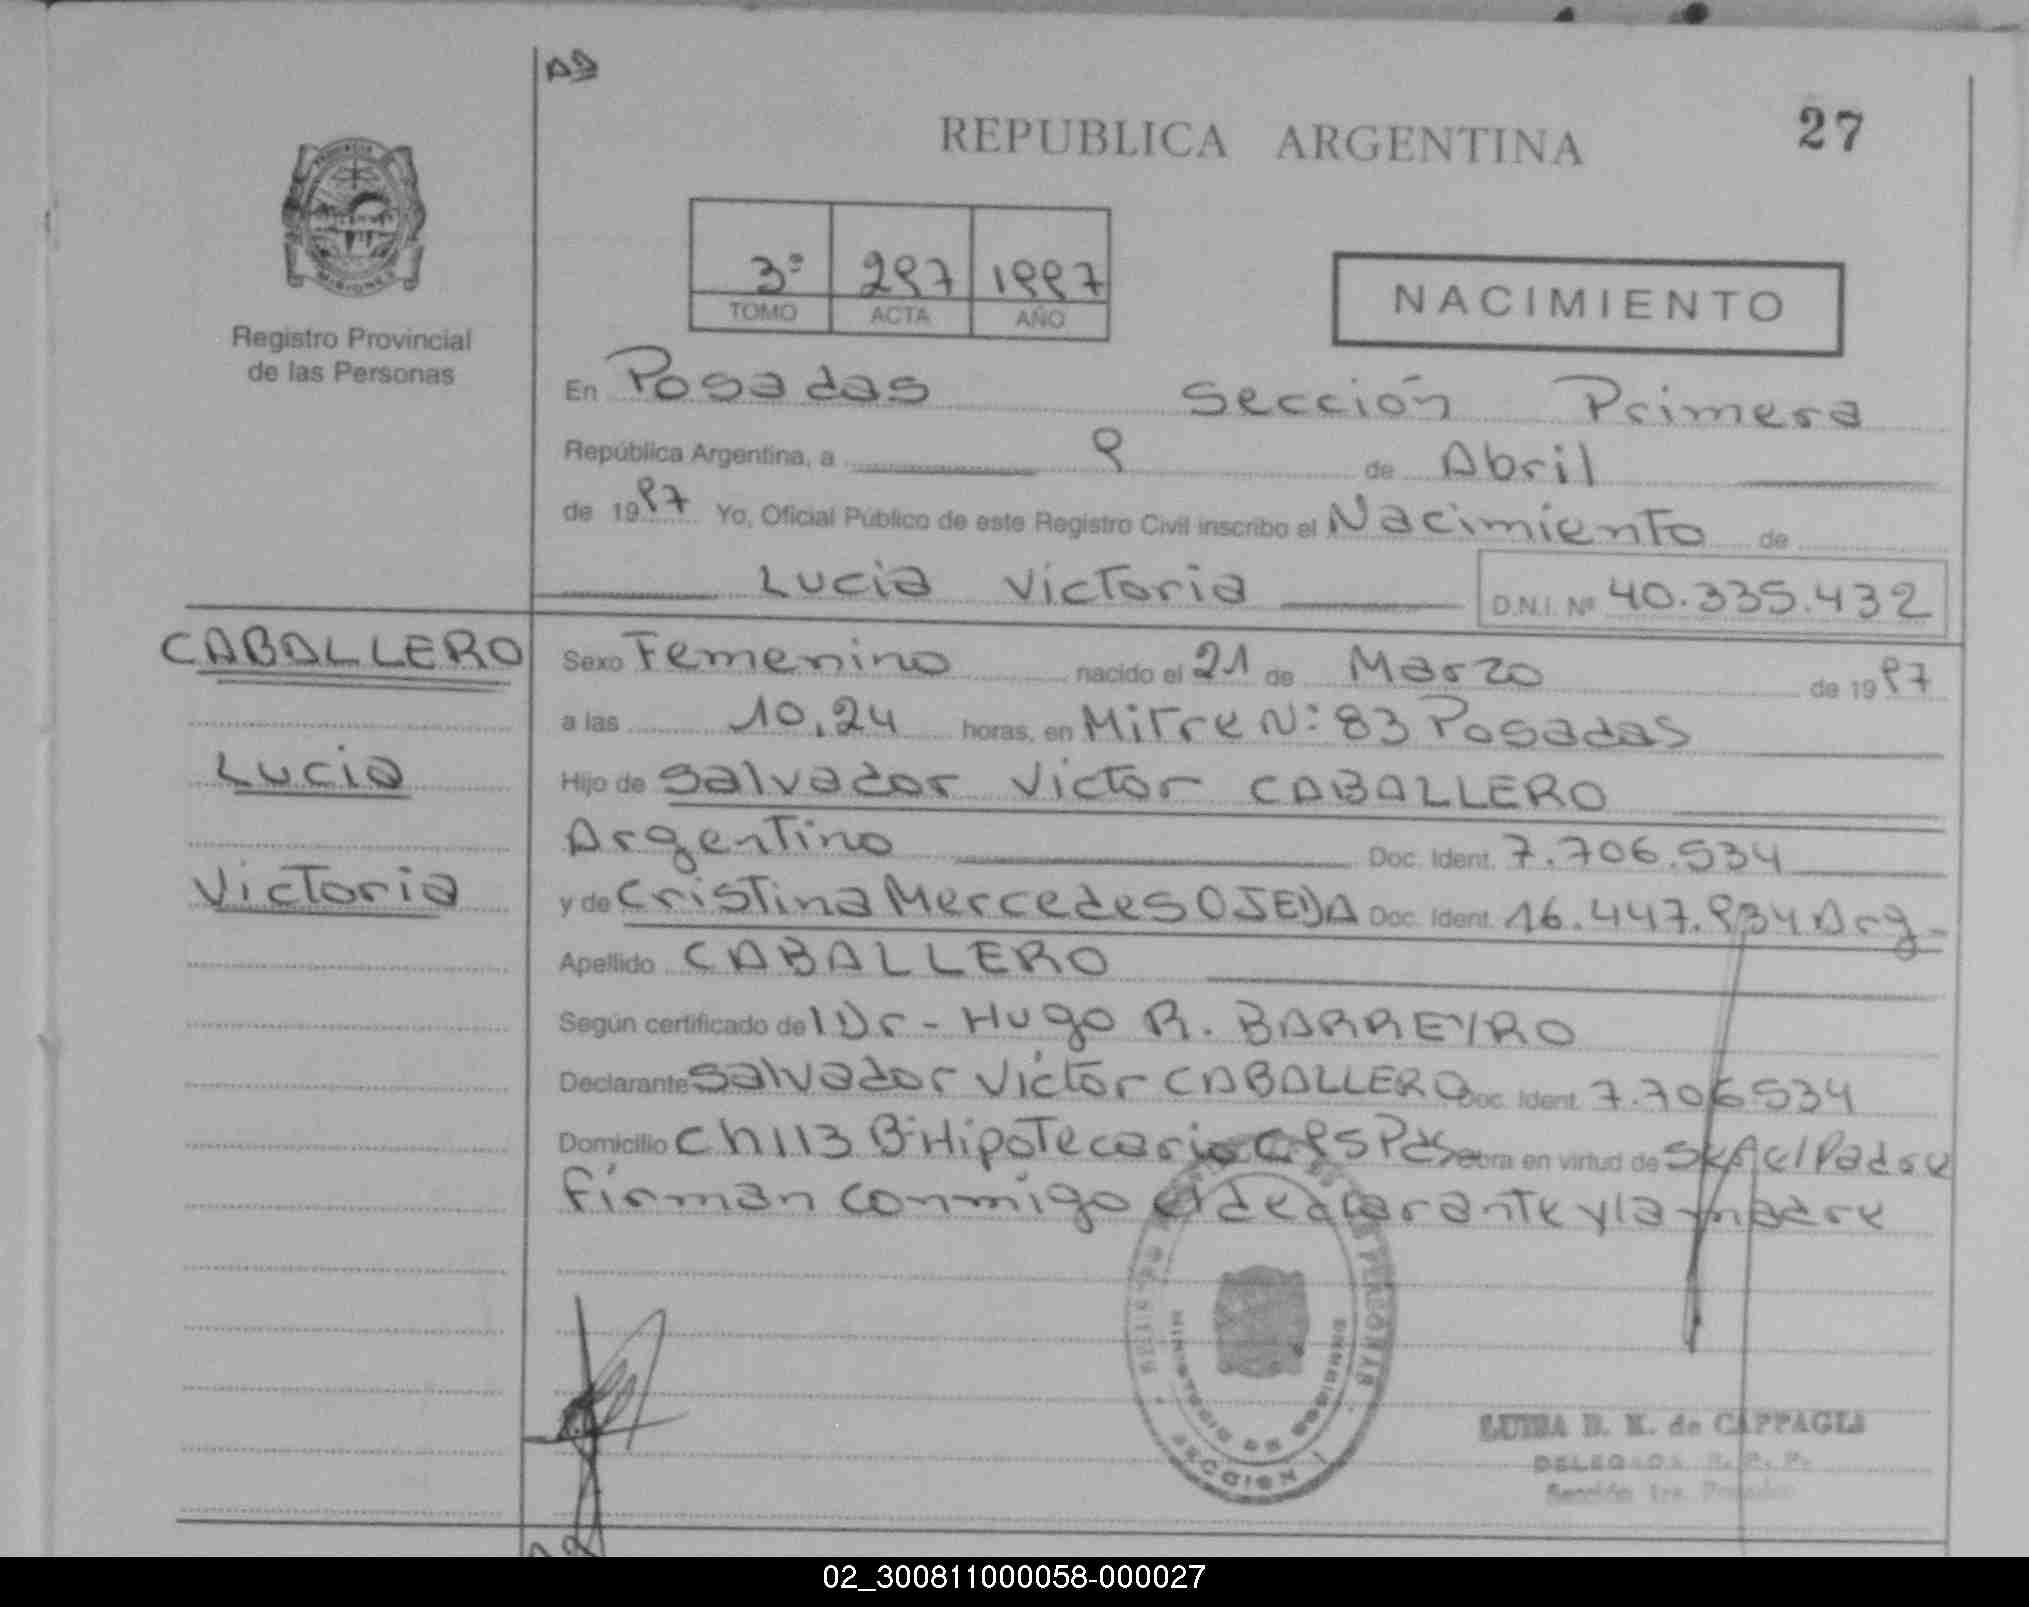 27
REPUBLICA ARGENTINA
PROVINCIA
MISIONES
Registro Provincial
de las Personas
3º 297 1997
TOMO ACTA AÑO
NACIMIENTO
En Posadas Sección Primera
República Argentina, a 9 de Abril
de 1997 Yo, Oficial Público de este Registro Civil inscribo el Nacimiento de
Lucia Victoria D.N.I. Nº 40.335.432
CABALLERO
Lucia
Victoria
Sexo Femenino nacido el 21 de Marzo de 1997
a las 10,24 horas, en Mitre N: 83 Posadas
Hijo de Salvador Victor CABALLERO
Argentino Doc. Ident. 7.706.534
y de Cristina Mercedes OJEDA Doc. Ident. 16.447.934 Arg.
Apellido CABALLERO
Según certificado del Dr- Hugo R. BARREYRO
Declarante Salvador Victor CABALLERO Doc. Ident. 7.706534
Domicilio Ch 113 Bº Hipotecario C Pdas obra en virtud de el Padre
Firman conmigo el declarante y la madre
MINISTERIO DE GOBIERNO
SECCION 1
LUISA B. M. de CAPPAGLI
DELEGADA R. P. P.
Sección 1ra. Posadas
02_300811000058-000027